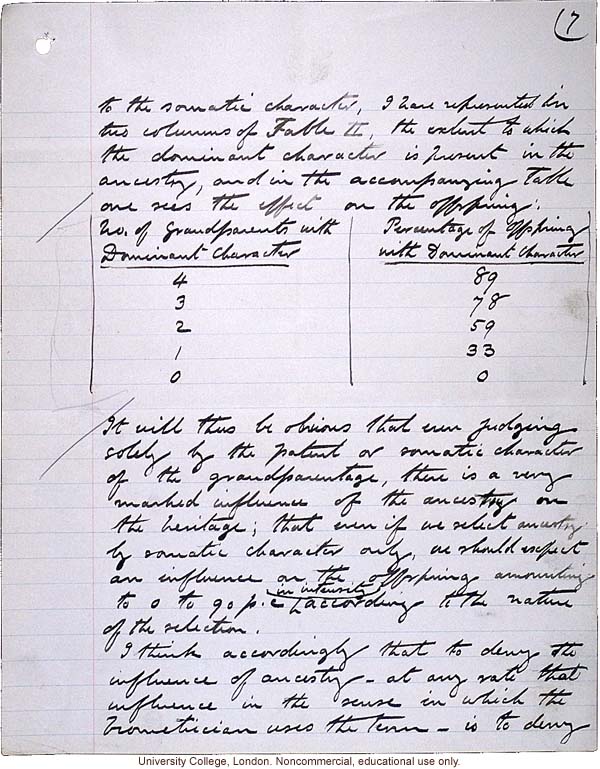 (7
to the somatic character, I have represented in
two columns of Table II, the extent to which
the dominant character is present in the
ancestry, and in the accompanying table
one sees the effect on the offspring.
No. of Grandparents with Percentage of Offspring
Dominant Character with Dominant Character
4 89
3 78
2 59
1 33
0 0
It will thus be obvious that even judging
solely by the patent or somatic character
of the grandparentage, there is a very
marked influence of the ancestry on
the heritage; that even if we select ancestry
by somatic character only, we should expect
an influence on the offspring amounting
in intensity
to 0 to 90 p.c according to the nature
of the selection.
I think accordingly that to deny the
influence of ancestry – at any rate that
influence in the sense in which the
biometrician uses the term – is to deny
University College, London. Noncommercial, educational use only.